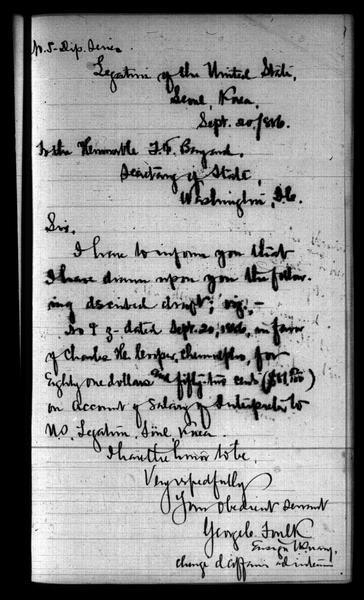 No. 5 - Dip. Series
Legation of the United States,
Seoul, Korea.
Sept. 20, 1886.
To the Honorable T. F. Bayard.
Secretary of State,
Washington, D.C.
Sir,
I have to inform you that
I have drawn upon you the follow-
ing described draft; viz; -
No dated Sept. 20, 1886, in favor
of Charles H. Cooper, Chemulpho, for
Eighty one dollars and fifty-two cents
on account of Salary of Interpreter to
U.S. Legation, Korea.
I have the honor to be,
Very respectfully
Your obedient servant
George C. Foulk
Ensign U.S. Navy,
chargé d'affaires ad interim